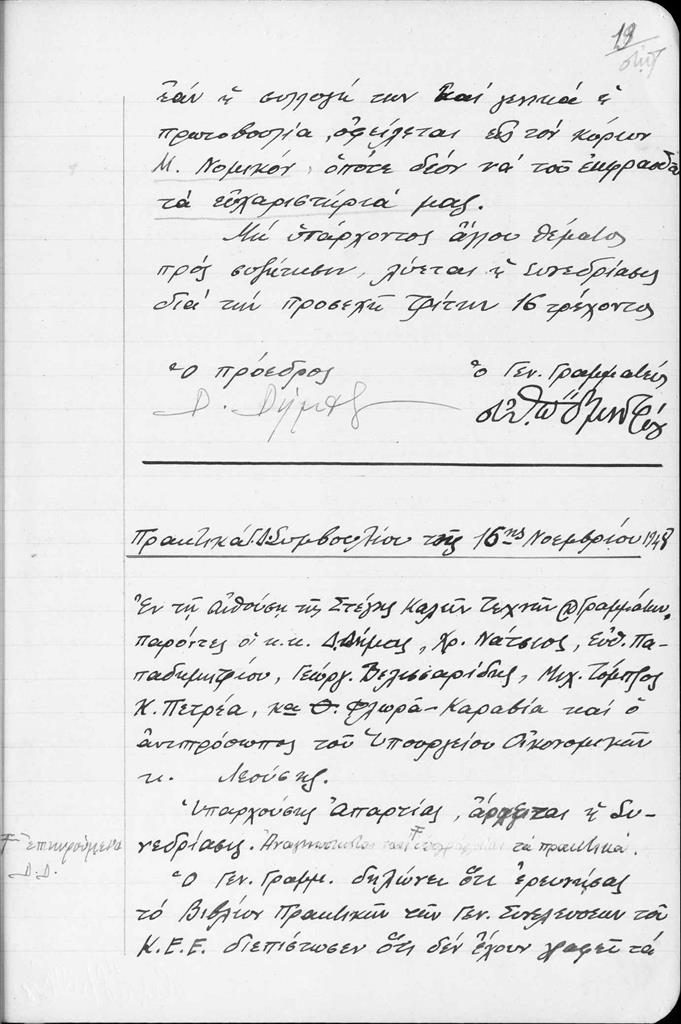 19
ἐάν ἡ συλλογή των καί γενικά ἡ
πρωτοβουλία, ὀφείλεται εἰς τόν κύριον
Μ. Νομικόν, ὁπότε δέον νά τοῦ ἐκφρασθοῦν
τά εὐχαριστήριά μας.
Μή ὑπάρχοντος ἄλλου θέματος
πρός συζήτησιν, λύεται ἡ Συνεδρίασις
διά τήν προσεχῆ Τρίτην 16 τρέχοντος
Ὁ πρόεδρος
ὁ Γεν. Γραμματεύς
Δ. Δήμας
Πρακτικά Γ.Δ. Συμβουλίου τῆς 16ης Νοεμβρίου 1948
Ἐν τῇ αἰθούσῃ τῆς Στέγης Καλῶν Τεχνῶν & Γραμμάτων,
παρόντες οἱ κ.κ. Δ. Δήμας, Χρ. Νάτσιος, Εὐθ. Πα-
παδημητρίου, Γεώργ. Βελισσαρίδης, Μιχ. Τόμπρος
Κ. Πετρέα, κα Θ. Φλωρᾶ-Καραβία καί ὁ
ἀντιπρόσωπος τοῦ Ὑπουργείου Οἰκονομικῶν
κ. Λεούσης.
Ὑπαρχούσης ἀπαρτίας, ἄρχεται ἡ Συ-
νεδρίασις. τά πρακτικά.
ἐπικυρούμενα
Δ.Δ.
Ὁ Γεν. Γραμμ. δηλώνει ὅτι ἐρευνήσας
τό Βιβλίον Πρακτικῶν τῶν Γεν. Συνελεύσεων τοῦ
Κ.Ε.Ε. διεπίστωσεν ὅτι δέν ἔχουν γραφεῖ τά